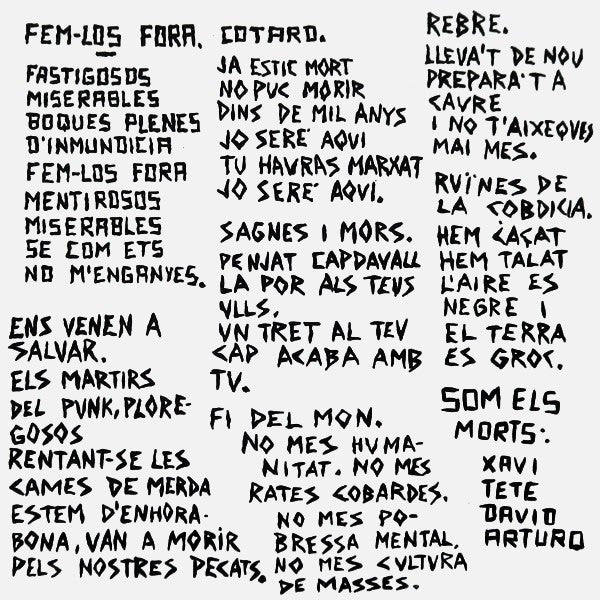 FEM-LOS FORA.
FASTIGOSOS
MISERABLES
BOQUES PLENES
D'INMUNDICIA
FEM-LOS FORA
MENTIROSOS
MISERABLES
SE COM ETS
NO M'ENGANYES.
ENS VENEN A
SALVAR.
ELS MARTIRS
DEL PUNK, PLORE-
GOSOS
RENTANT-SE LES
CAMES DE MERDA
ESTEM D'ENHORA-
BONA, VAN A MORIR
PELS NOSTRES PECATS.
COTARD.
JA ESTIC MORT
NO PUC MORIR
DINS DE MIL ANYS
JO SERE' AQUI
TU HAURAS MARXAT
JO SERE' AQUI.
SAGNES I MORS.
PENJAT CAPDAVALL
LA POR ALS TEUS
ULLS.
UN TRET AL TEU
CAP ACABA AMB
TU.
FI DEL MON.
NO MES HUMA-
NITAT. NO MES
RATES COBARDES.
NO MES PO-
BRESSA MENTAL.
NO MES CULTURA
DE MASSES.
REBRE.
LLEVA'T DE NOU
PREPARA'T A
CAURE
I NO T'AIXEQUES
MAI MES.
RUÏNES DE
LA COBDICIA.
HEM CAÇAT
HEM TALAT
L'AIRE ES
NEGRE I
EL TERRA
ES GROC.
SOM ELS
MORTS:
XAVI
TETE
DAVID
ARTURO